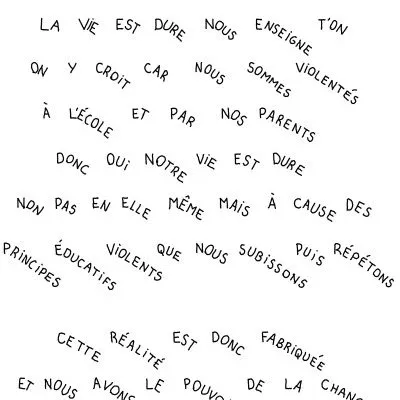 LA ViE EST DURE NOUS ENSEiGNE T'ON
ON Y CROiT CAR NOUS SOMMES ViOLENTÉS
À L'ÉCOLE ET PAR NOS PARENTS
DONC OUi NOTRE ViE EST DURE
NON PAS EN ELLE MÊME MAiS À CAUSE DES
PRiNCiPES ÉDUCATiFS ViOLENTS QUE NOUS SUBiSSONS PUiS RÉPÉTONS
CETTE RÉALiTÉ EST DONC FABRiQUÉE
ET NOUS AVONS LE POUVO DE LA CHANG